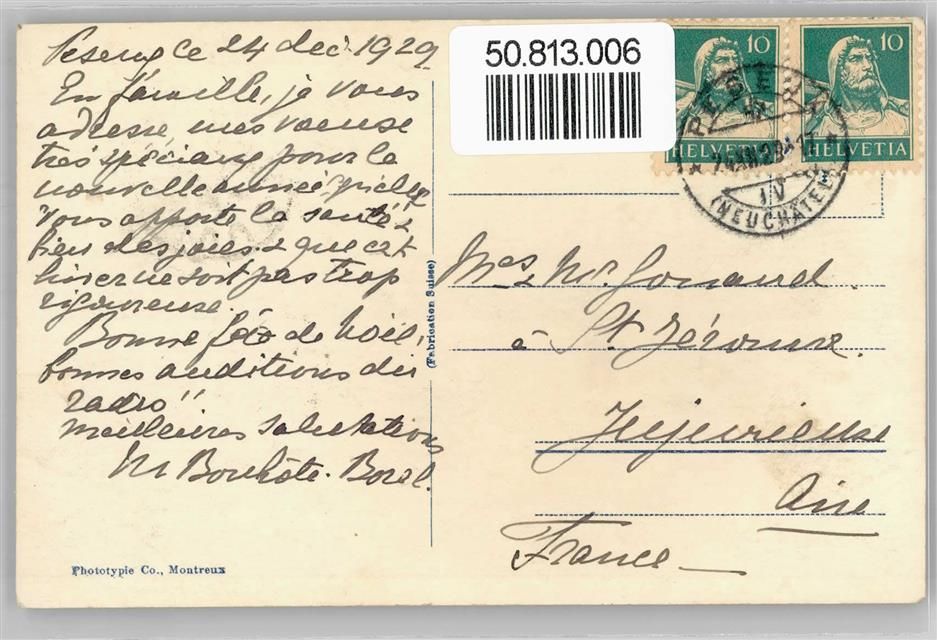 Peseux ce 24 dec. 1929
En famille, je vous
adresse, mes voeuse
très spéciaux pour la
nouvelle année qu'elle
vous apporte la santé &
bien des joies & que cet
hiver ne soit pas trop
rigoureuse.
Bonne fête de Noël,
bonnes auditions du
radio"
meilleures salutations
M Bonhôte-Borel.
Phototypie Co., Montreux
(Fabrication Suisse)
50.813.006
10
HELVETIA
10
HELVETIA
PESEUX
(NEUCHÂTEL)
IV
à St. Jérome.
Jujurieux
Ain
France